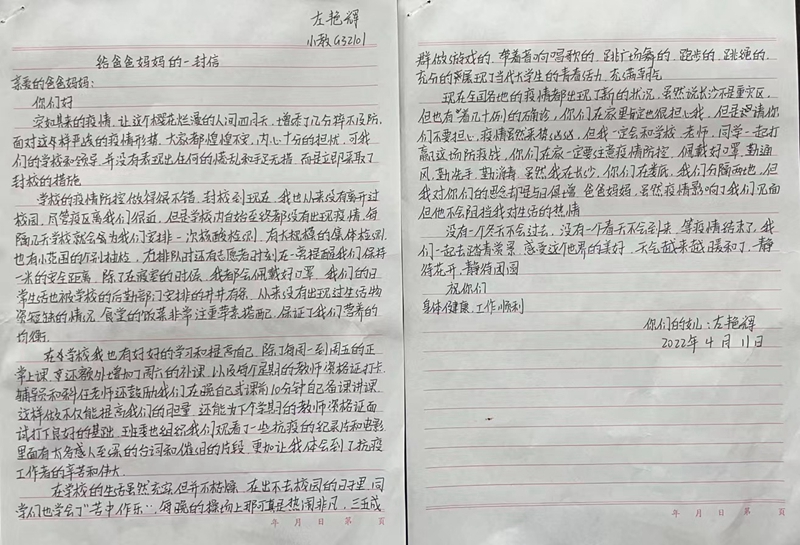 左艳辉
小教G32101
给爸爸妈妈的一封信
亲爱的爸爸妈妈：
你们好
突如其来的疫情，让这个樱花烂漫的人间四月天，增添了几分猝不及防，
面对这样严峻的疫情形势，大家都惶惶不安，内心十分的担忧，可我
们的学校和领导，并没有表现出任何的慌乱和手足无措，而是立即采取了
封校的措施
学校的疫情防控做得很不错，封校到现在，我也从来没有离开过
校园，尽管疫区离我们很近，但是学校内自始至终都没有出现疫情，每
隔几天学校就会为我们安排一次核酸检测，有大规模的集体检测，
也有小范围的个别抽检，在排队时还有志愿者时刻在一旁提醒我们保持
一米的安全距离，除了在寝室的时候，我都会佩戴好口罩，我们的日
常生活也被学校的后勤部门安排的井井有条，从来没有出现过生活物
资短缺的情况，食堂的饭菜非常注重荤素搭配，保证了我们营养的
均衡.
在学校我也有好好的学习和提高自己，除了每周一到周五的正
常上课，还额外增加了周六的补课，以及每个星期的教师资格证打卡，
辅导员和科任老师还鼓励我们在晚自习或课前10分钟自己备课讲课，
这样做不仅能提高我们的胆量，还能为下个学期的教师资格证面
试打下良好的基础，班委也组织我们观看了一些抗疫的纪录片和电影
里面有太多感人至深的台词和催泪的片段，更加让我体会到了抗疫
工作者的辛苦和伟大
在学校的生活虽然充实但并不枯燥，在出不去校园的日子里，同
学们也学会了"苦中作乐"，每晚的操场上那可真是热闹非凡，三五成
年 月 日 第 页
群做游戏的，带着音响唱歌的，跳广场舞的，跑步的，跳绳的，
充分的展现了当代大学生的青春活力，充满朝气
现在全国各地的疫情都出现了新的状况，虽然说长沙不是重灾区，
但也有着几十例的确诊，你们在家里肯定也很担心我，但是请你
们不要担心，疫情虽然来势汹汹，但我一定会和学校、老师、同学一起打
赢这场防疫战，你们在家一定要注意疫情防控，佩戴好口罩，勤通
风，勤洗手，勤消毒，虽然我在长沙，你们在老底，我们分隔两地，但
我对你们的思念却是与日俱增，爸爸妈妈，虽然疫情影响了我们见面
但他不会阻挡我对生活的热情
没有一个冬天不会过去，没有一个春天不会到来，等疫情结束了，我
们一起去踏青赏景，感受这个世界的美好，天气越来越暖和了，静
待花开，静待团圆
祝你们
身体健康，工作顺利
你们的女儿：左艳辉
2022年4月11日
年 月 日 第 页